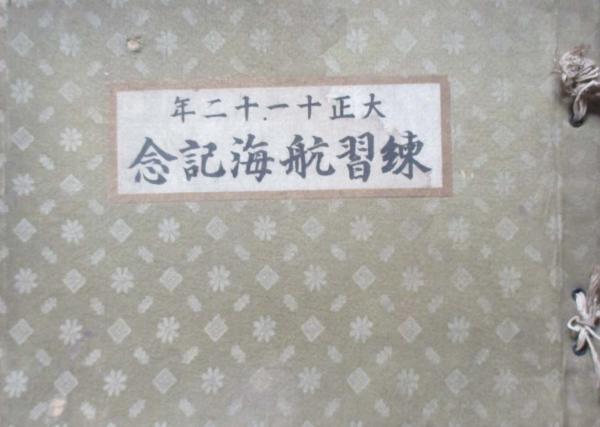 大正十一.十二年
練習航海記念